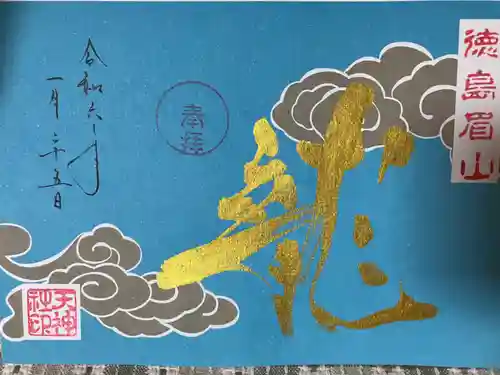 徳島眉山
龍
奉拝
令和六年
一月二十五日
天神
社印